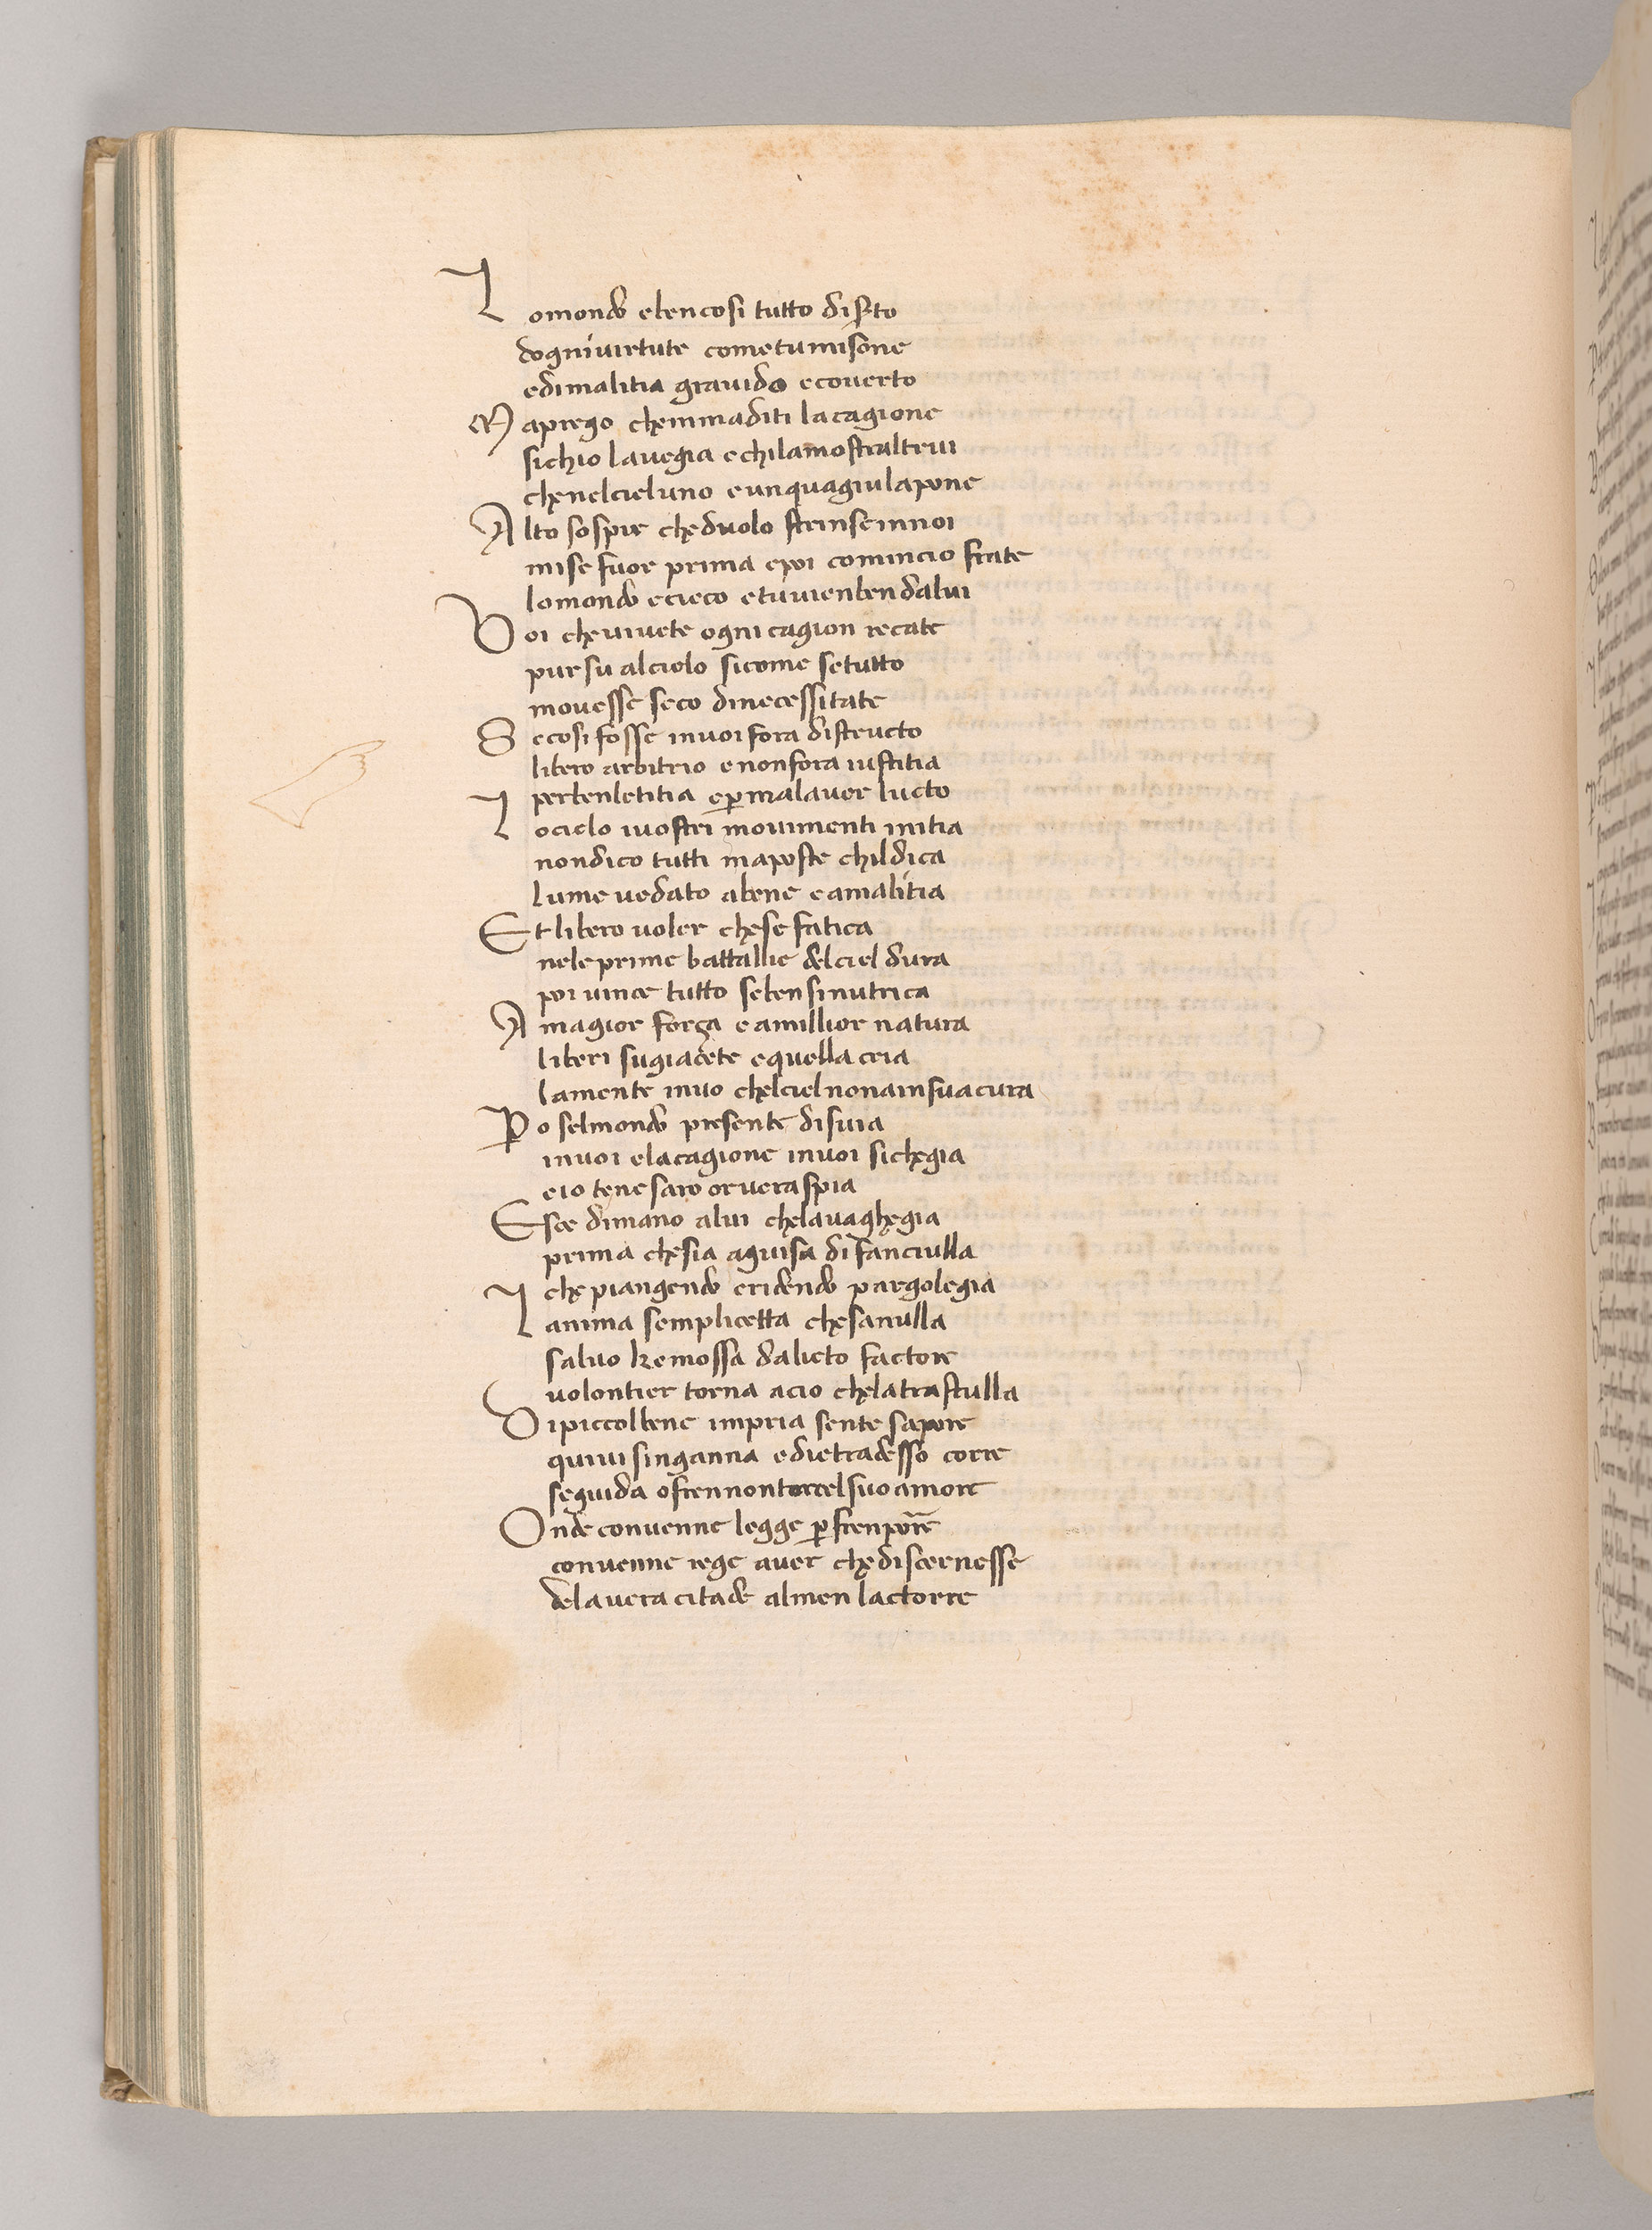 Lomondo eben cosi tutto diserto
dognivirtute come tu mi sone
edimalitia gravido ecoverto
Maprego chemmaditi lacagione
sichio lavegia echilamostraltrui
chenelcieluno eunquagiulapone
Alto sospir cheduolo strinseinnoi
mise fuor prima epoi comincio frate
lomondo ecieco etuvienbendalui
Voi chevivete ogni cagion recate
pursu alcielo sicome setutto
movesse seco dinecessitate
Secosi fosse invoi fora distructo
libero arbitrio enonfora iustitia
perbenletitia epermalaver lucto
Locielo ivostri movimenti initia
nondico tutti maposte childica
lume vedato abene eamalitia
Et libero voler chese fatica
nele prime battallie delciel dura
poi vince tutto seben sinutrica
Amagior força eamillior natura
liberi sugiacete equella cria
lamente invo chelcielnonainsuacura
Po selmondo presente disvia
invoi elacagione invoi sichegia
eio tene saro orveraspia
Esce dimano alui chelavaghegia
prima chesia aguisa di fanciulla
che piangendo eridendo pargolegia
Lanima semplicetta chesanulla
salvo kemossa dalieto factore
volontier torna acio chelatrastulla
Dipiccolbene impria sente sapore
quivi singanna edietradesso corre
seguida ofrennontorcelsuoamore
Onde convenne legge per frenporre
convenne rege aver chediscernesse
delavera citade almen lactorre